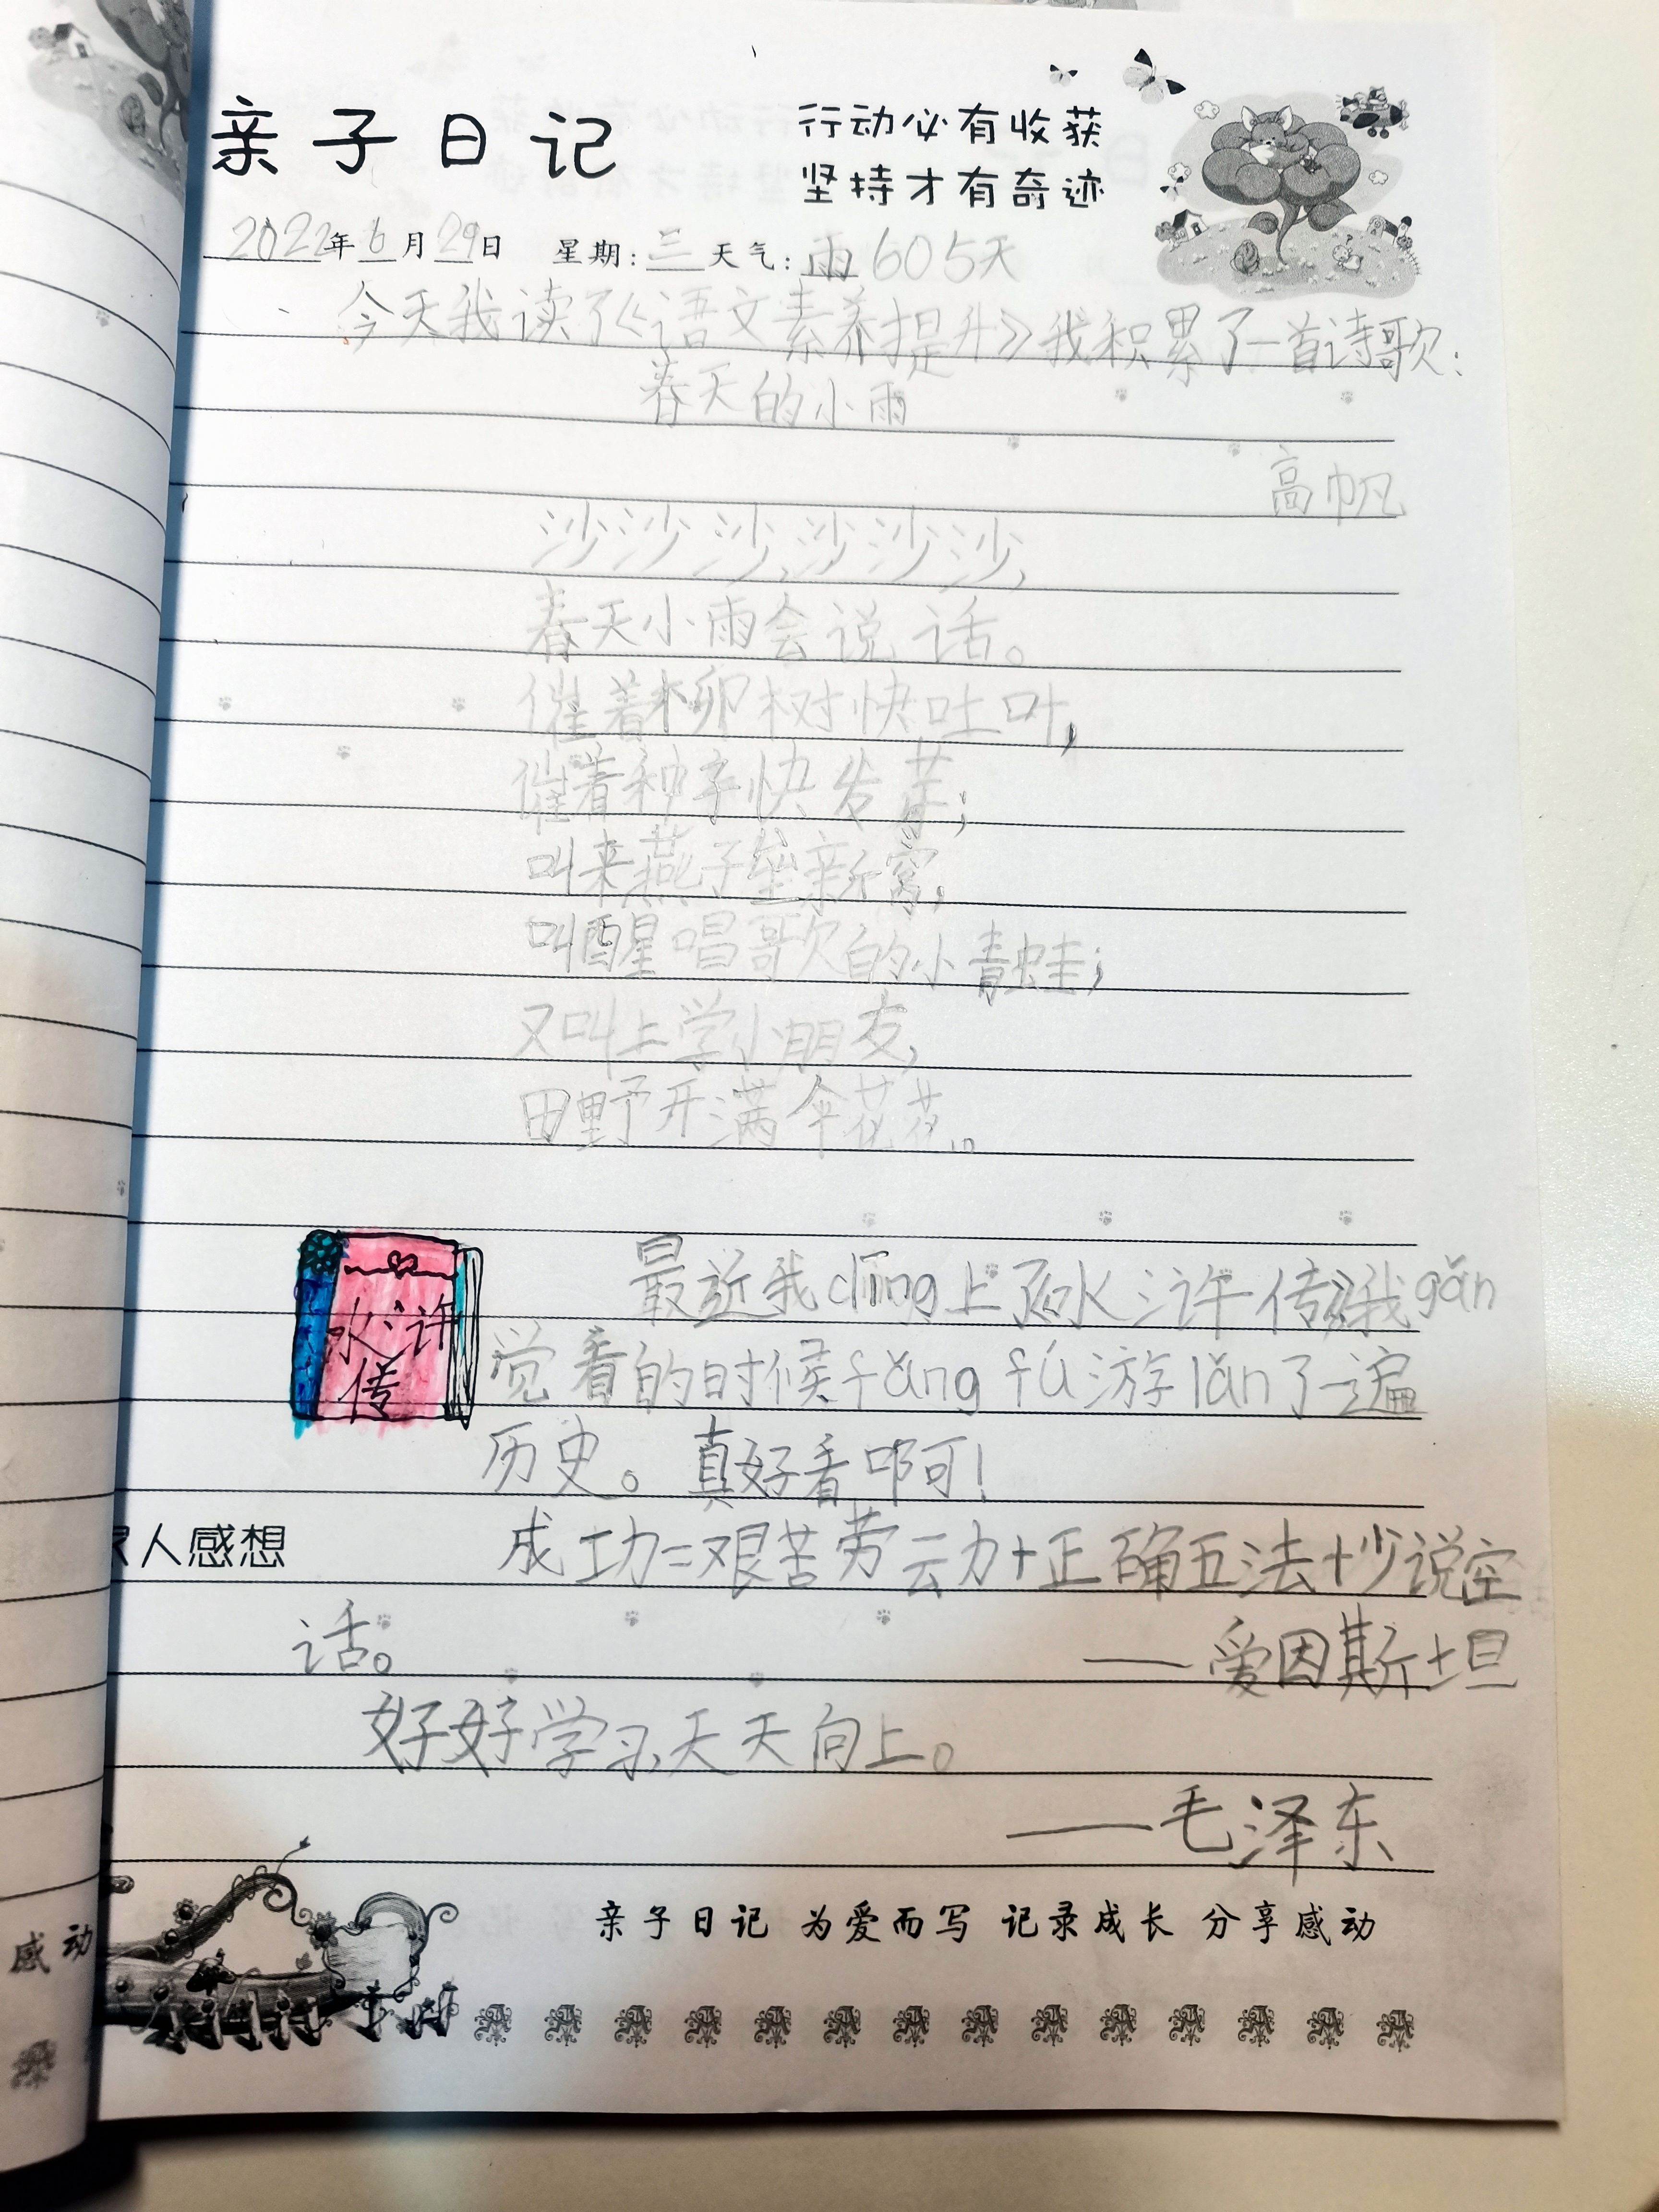 亲子日记
行动必有收获
坚持才有奇迹
2022年6月29日 星期:三天气:雨605天
今天我读了《语文素养提升》我积累了一首诗歌:
春天的小雨
高帆
沙沙沙,沙沙沙,
春天小雨会说话。
催着柳树快吐叶,
催着种子快发芽;
叫来燕子垒新窝,
叫醒唱歌的小青蛙;
又叫上学小朋友,
田野开满伞花花。
水浒
传
最近我dīng上了《水浒传》我gǎn
觉看的时候fǎng fú游lǎn了一遍
历史。真好看啊!
人感想
成功=艰苦劳动+正确方法+少说空
话。
——爱因斯坦
好好学习,天天向上。
——毛泽东
亲子日记 为爱而写 记录成长 分享感动
感动